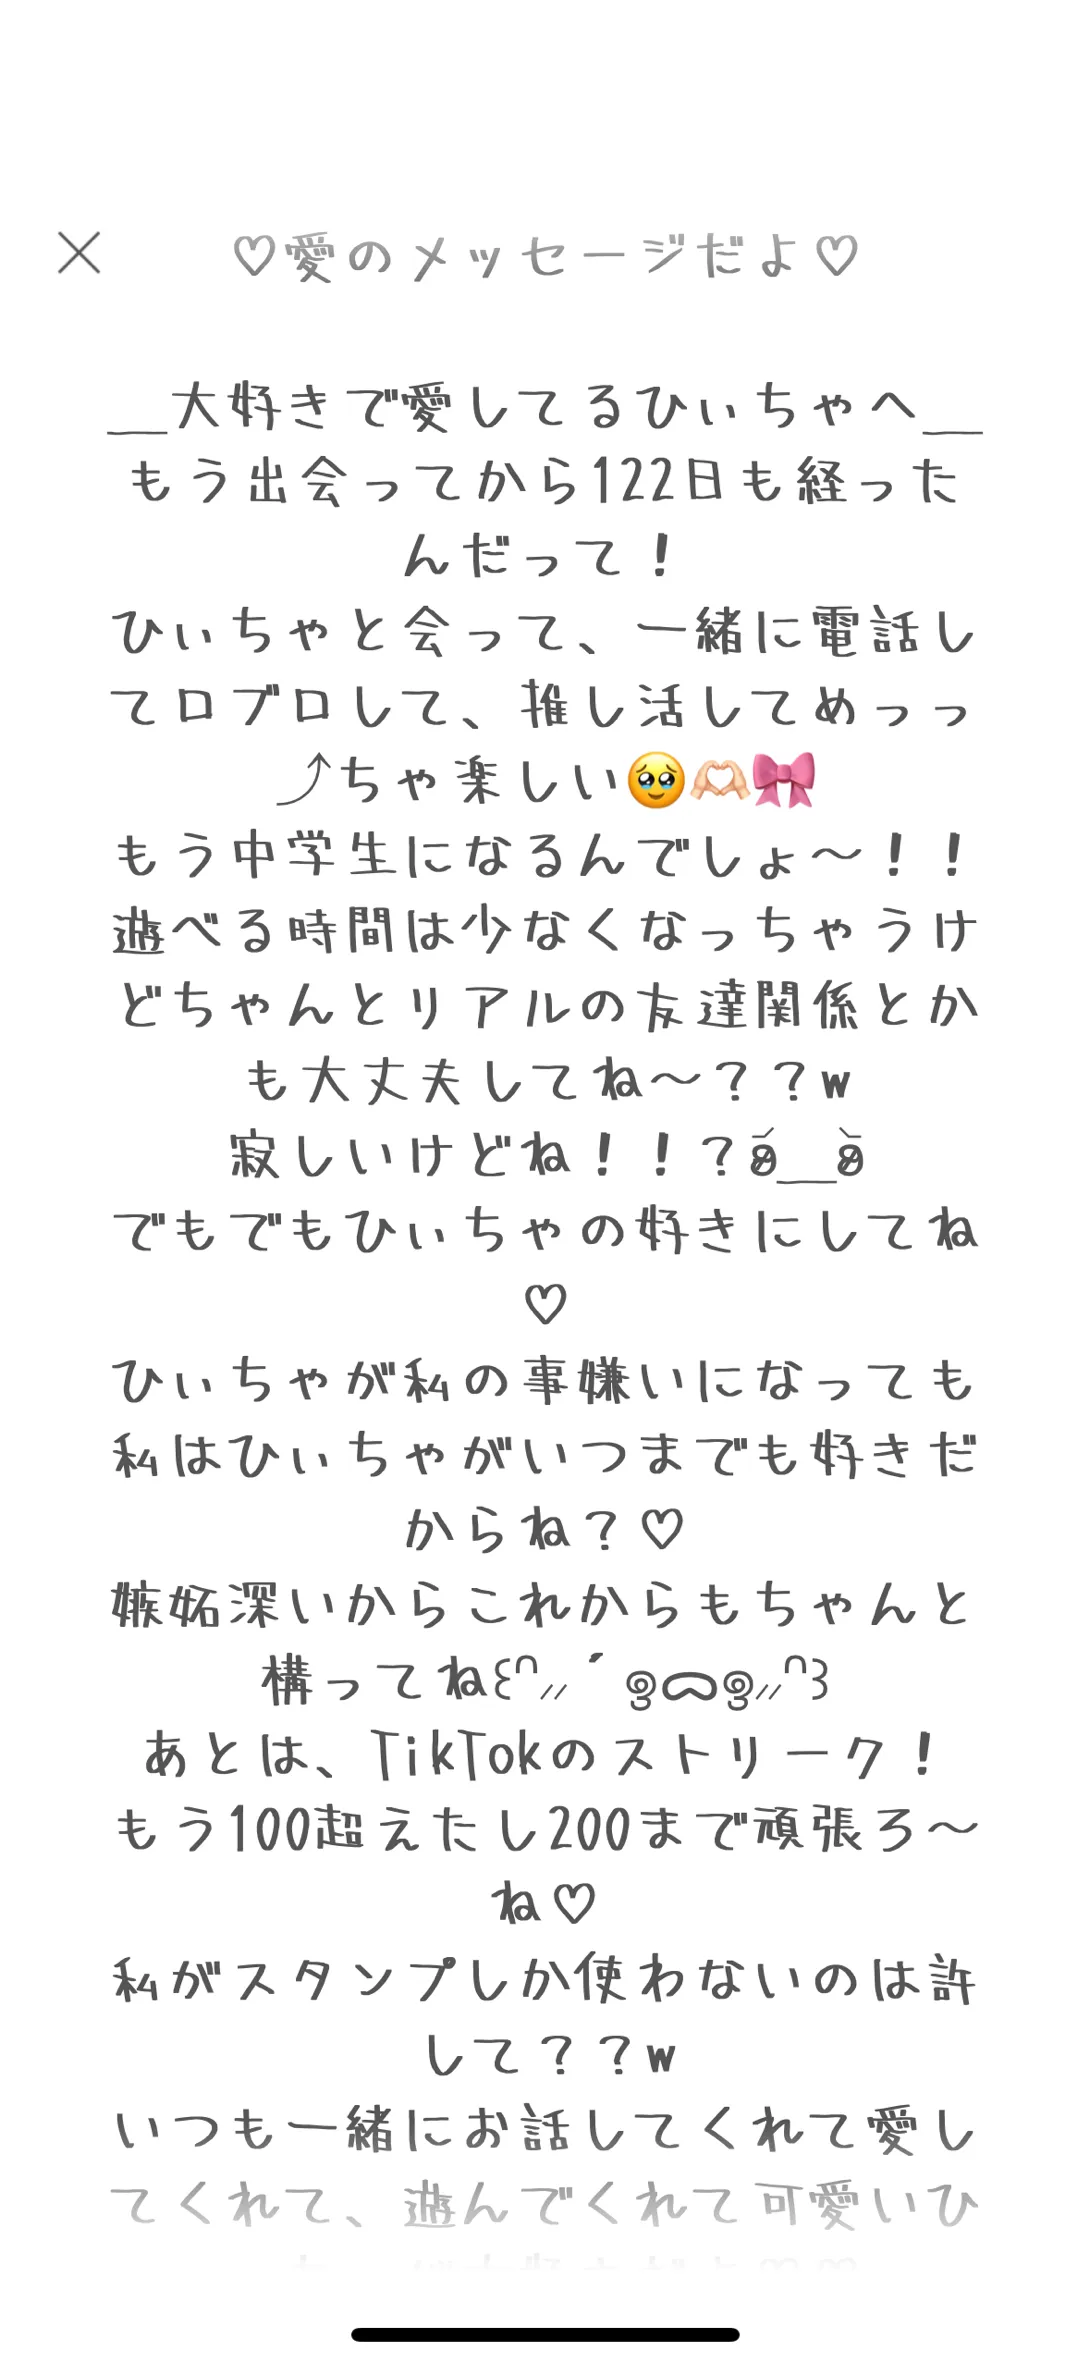 ♡愛のメッセージだよ♡
__大好きで愛してるひぃちゃへ__
もう出会ってから122日も経った
んだって！
ひぃちゃと会って、一緒に電話し
てロブロして、推し活してめっっ
⤴ちゃ楽しい🥹🫶🏻🎀
もう中学生になるんでしょ〜！！
遊べる時間は少なくなっちゃうけ
どちゃんとリアルの友達関係とか
も大丈夫してね〜？？w
寂しいけどね！！？
でもでもひぃちゃの好きにしてね
♡
ひぃちゃが私の事嫌いになっても
私はひぃちゃがいつまでも好きだ
からね？♡
嫉妬深いからこれからもちゃんと
構ってね꒰ᐢ⸝⸝´ இ ᯅ இ⸝⸝ᐢ꒱
あとは、TikTokのストリーク！
もう100超えたし200まで頑張ろ〜
ね♡
私がスタンプしか使わないのは許
して？？w
いつも一緒にお話してくれて愛し
てくれて、遊んでくれて可愛いひ